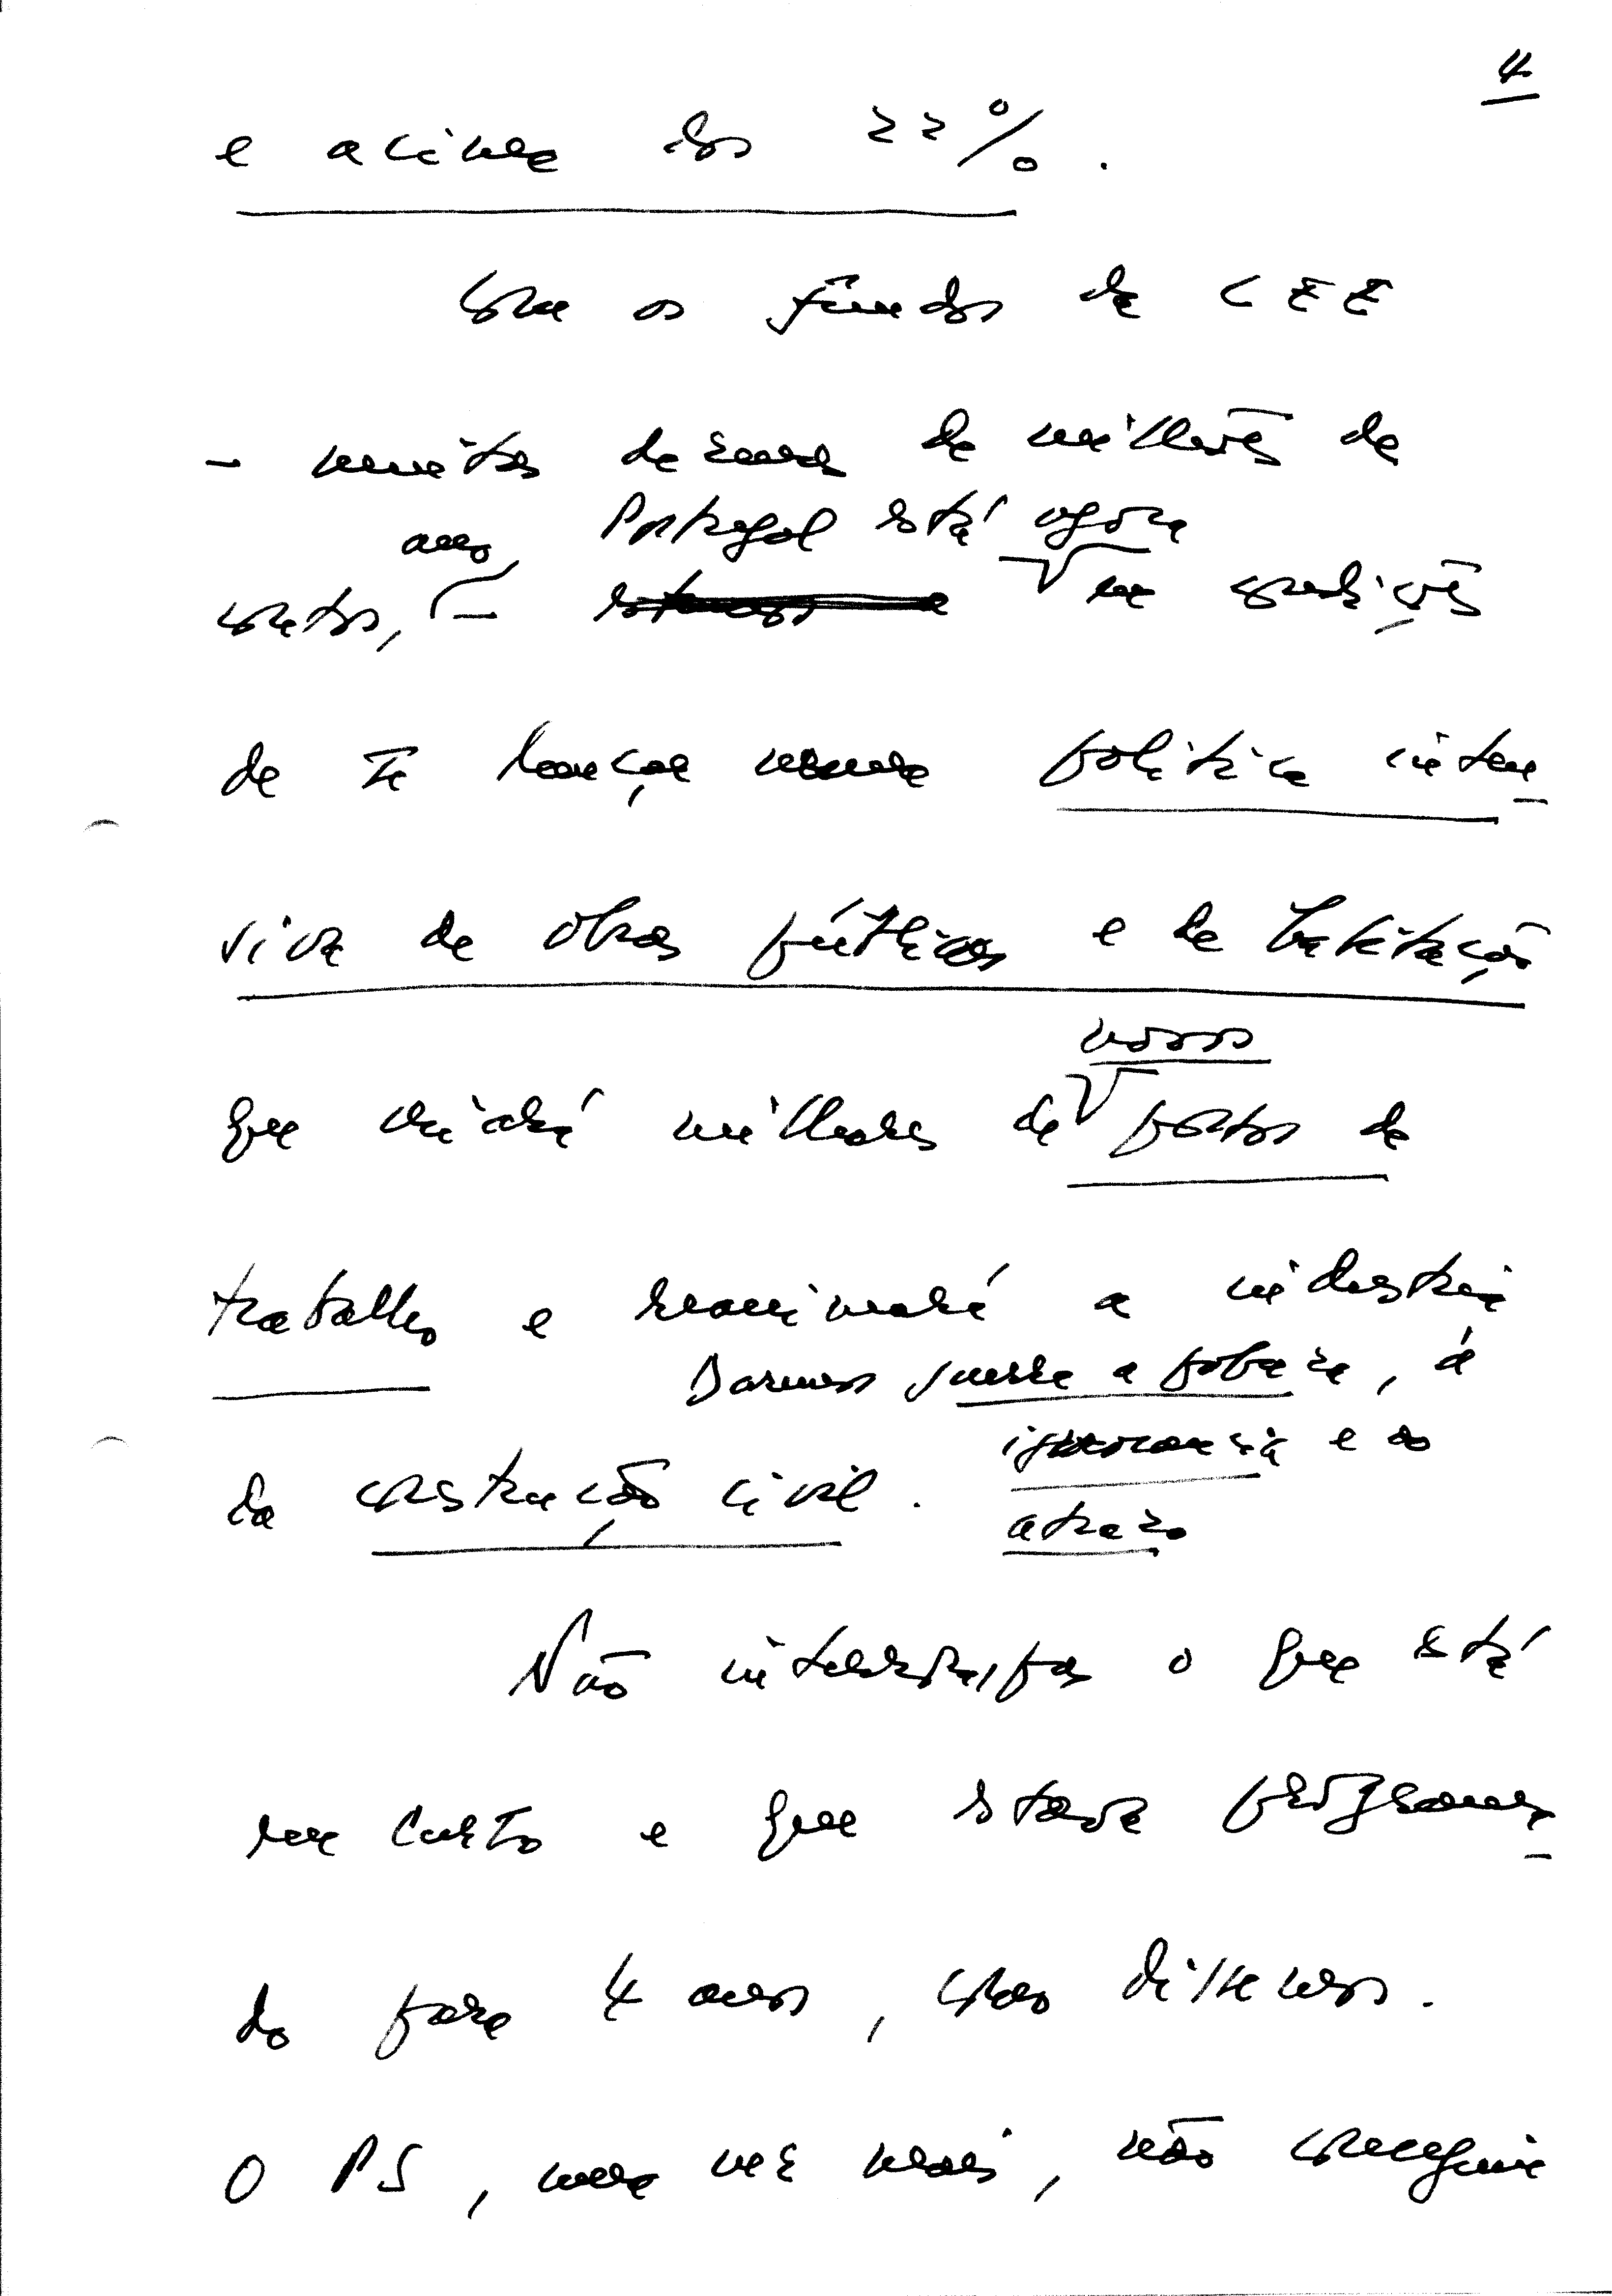 4
e acima dos 22%.
Com os fundos da CEE
- muitas dezenas de milhões de
ano, Portugal está agora
contos, - em condições
de lançar uma política inten-
siva de obras públicas e de habitação
novos
que criará milhares de postos de
trabalho e reanimará a indústria
Daremos guerra à pobreza, à
ignorância e ao
da construção civil.
atrazo
Não interrompa o que está
em curso e que estava programa-
do para 4 anos, disse
O PS, uma vez mais, não conseguiu